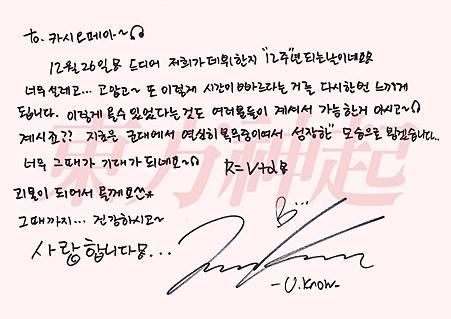 to. 카시오페아~
12월 26일은 드디어 저희가 데뷔한지 "12주"년 되는날이네요
너무 설레고... 고맙고~ 또 이렇게 시간이 빠르다는 거를 다시한번 느끼게
됩니다. 이렇게 올수 있었다는것도 여러분들이 계셔서 가능한거 아시고~
계시죠?? 지금은 군대에서 열심히 복무중이여서 성장한" 모습으로 뵙겠습니다..
너무 그때가 기대가 되네요~
R=VD
괴물이 되어서 올게요^^*
그때까지... 건강하시고~
사랑합니다...
-U.Know-
東方神起